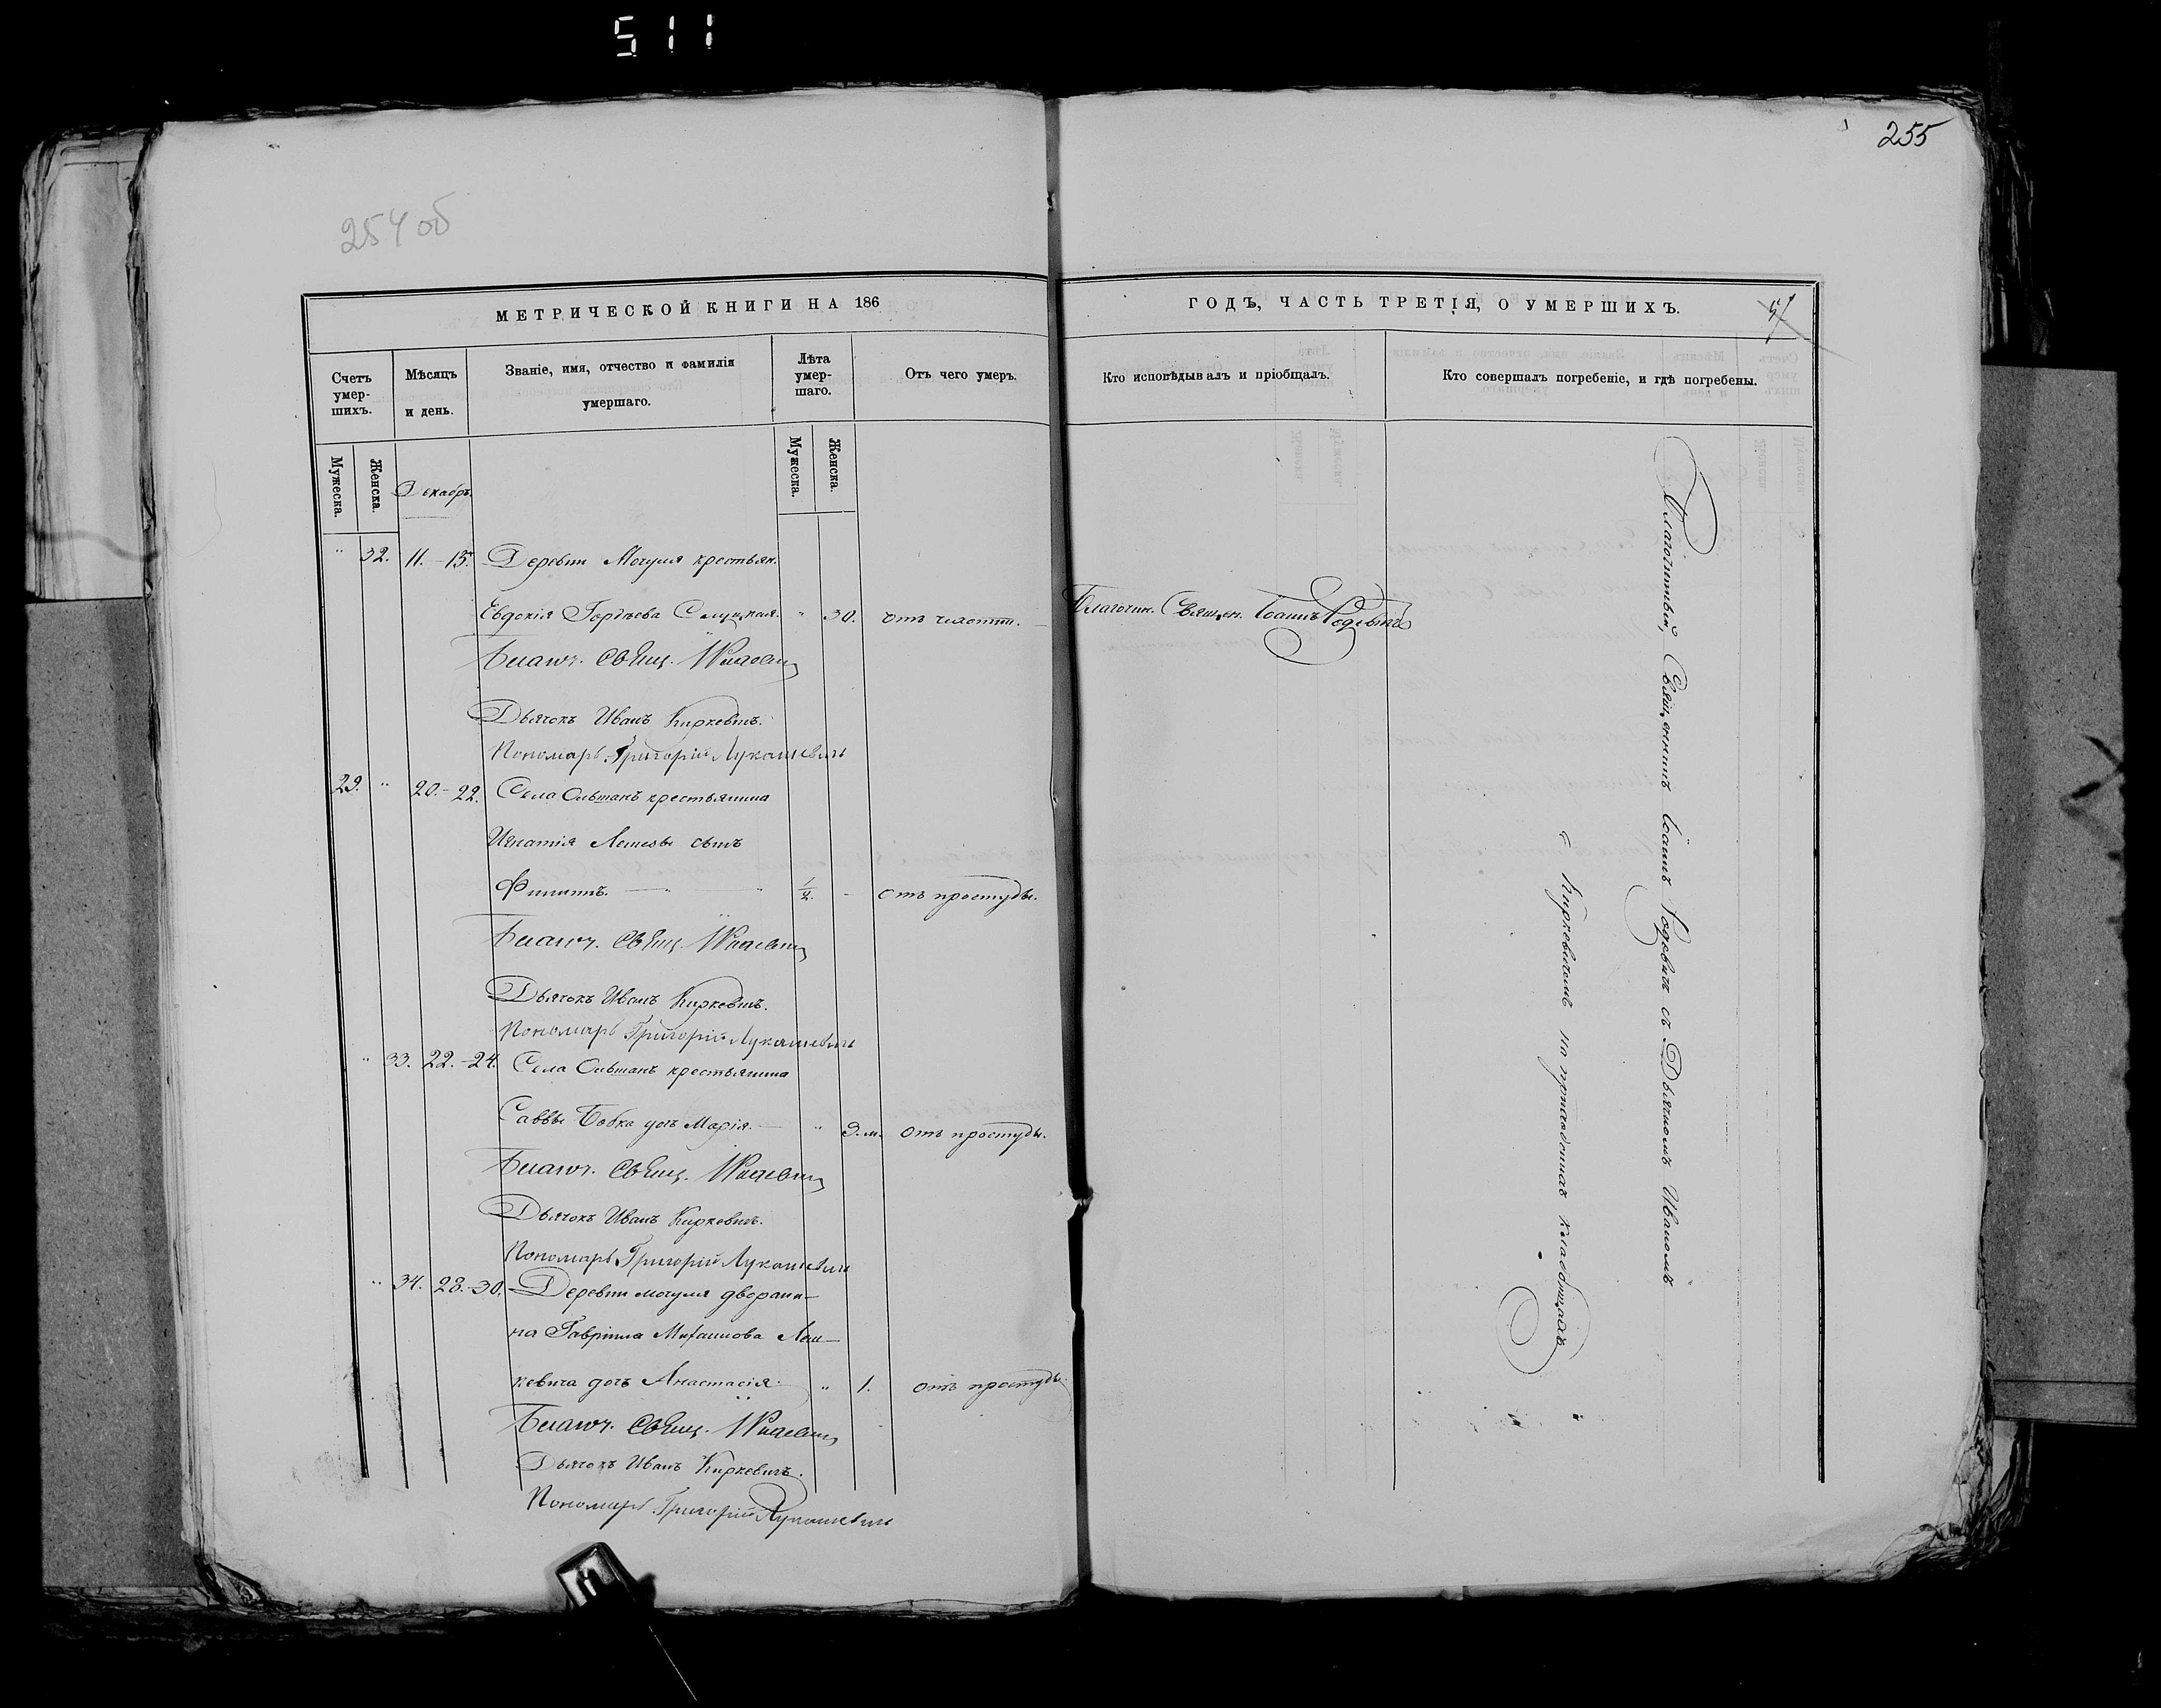 511
255
254 об
МЕТРИЧЕСКОЙ КНИГИ НА 186
ГОДЪ, ЧАСТЬ ТРЕТІЯ, О УМЕРШИХЪ.
Счетъ умер-шихъ.
Мѣсяцъ и день.
Званіе, имя, отчество и фамилія умершаго.
Лѣта умер-шаго.
Отъ чего умеръ.
Кто исповѣдывалъ и пріобщалъ.
Кто совершалъ погребеніе, и гдѣ погребены.
Мужеска.
Женска.
Мужеска.
Женска.
Декабрь.
" 32. 11.-13. Деревни Мочуля крестьян.
Евдокія Гордѣева Слуцкая. " 30. отъ
Благочин. Священ. Іоаннъ Родевичъ
Благоч. Свящ. І Родевич
Дьячокъ Иванъ Киркевичъ.
Пономарь Григорій Лукашевичъ
29. " 20.-22. Села Ольшанъ крестьянина
Игнатія сынъ
Филиппъ. 1/2. - отъ простуды.
Благоч. Свящ. І Родевич
Дьячокъ Иванъ Киркевичъ.
Пономарь Григорій Лукашевичъ
" 33. 22.-24. Села Ольшанъ крестьянина
Саввы Бобка дочь Марія. " 3. м. отъ простуды.
Благоч. Свящ. І Родевич
Дьячокъ Иванъ Киркевичъ.
Пономарь Григорій Лукашевичъ
" 34. 28.-30. Деревни Мочуля дворяни-
на Гавріила Михаилова Лаш-
кевича дочь Анастасія. " 1. отъ простуды.
Благоч. Свящ. І Родевич
Дьячокъ Иванъ Киркевичъ.
Пономарь Григорій Лукашевичъ
Благочинный, Священникъ Іоаннъ Родевичъ съ Дьячкомъ Иваномъ
Киркевичемъ на приходскихъ кладбищахъ